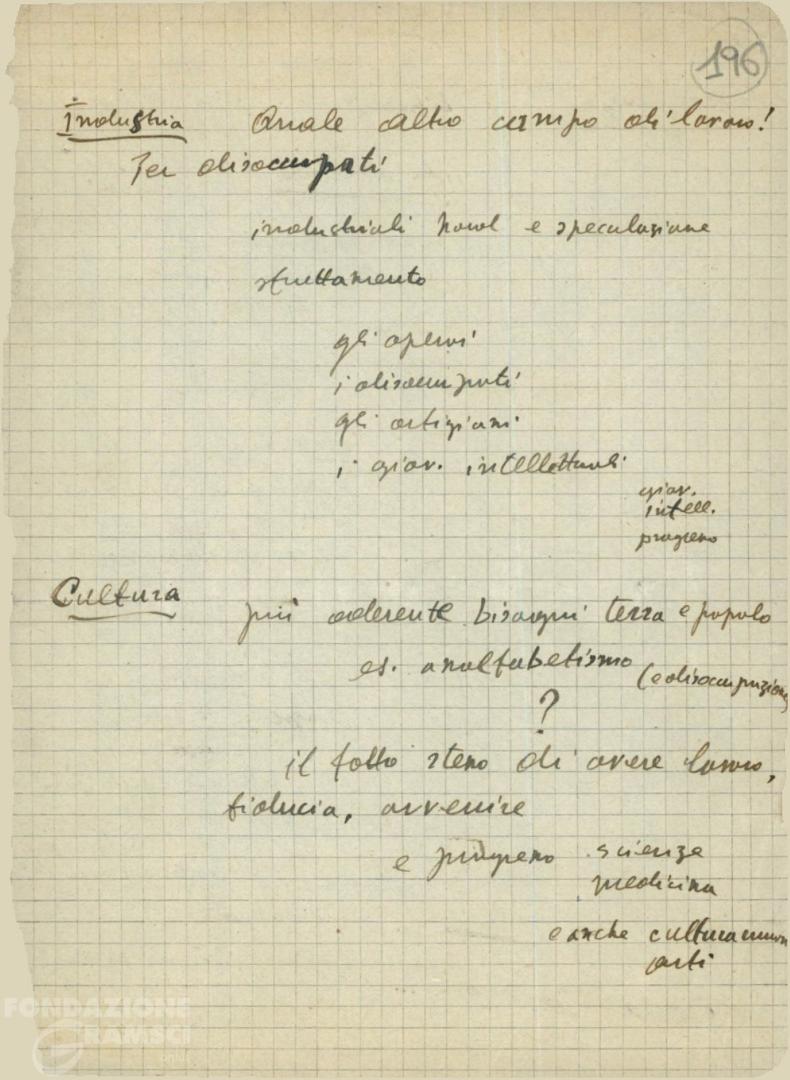 196
Industria Quale altro campo di lavoro!
Per disoccupati
industriali nord e speculazione
sfruttamento
gli operai
i disoccupati
gli artigiani
i giov. intellettuali
giov.
intell.
progresso
Cultura
più aderente bisogni terra e popolo
es. analfabetismo (e disoccupazione)
?
il fatto stesso di avere lavoro,
fiducia, avvenire
e progresso scienze
medicina
e anche cultura
arti
FONDAZIONE
GRAMSCI
onlus